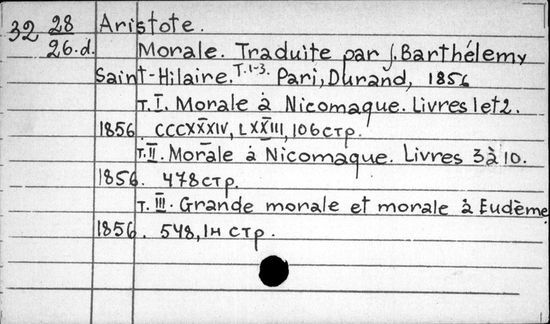 32 28 Aristote.
26.d. Morale. Traduite par J. Barthélemy
Saint-Hilaire. T. 1-3. Pari, Durand, 1856
т. I. Morale à Nicomaque. Livres 1 et 2.
1856. CCCXXXIV, LXXIII, 106 стр.
т. II. Morale à Nicomaque. Livres 3 à 10.
1856. 478 стр.
т. III. Grande morale et morale à Eudème
1856. 548, 1н стр.